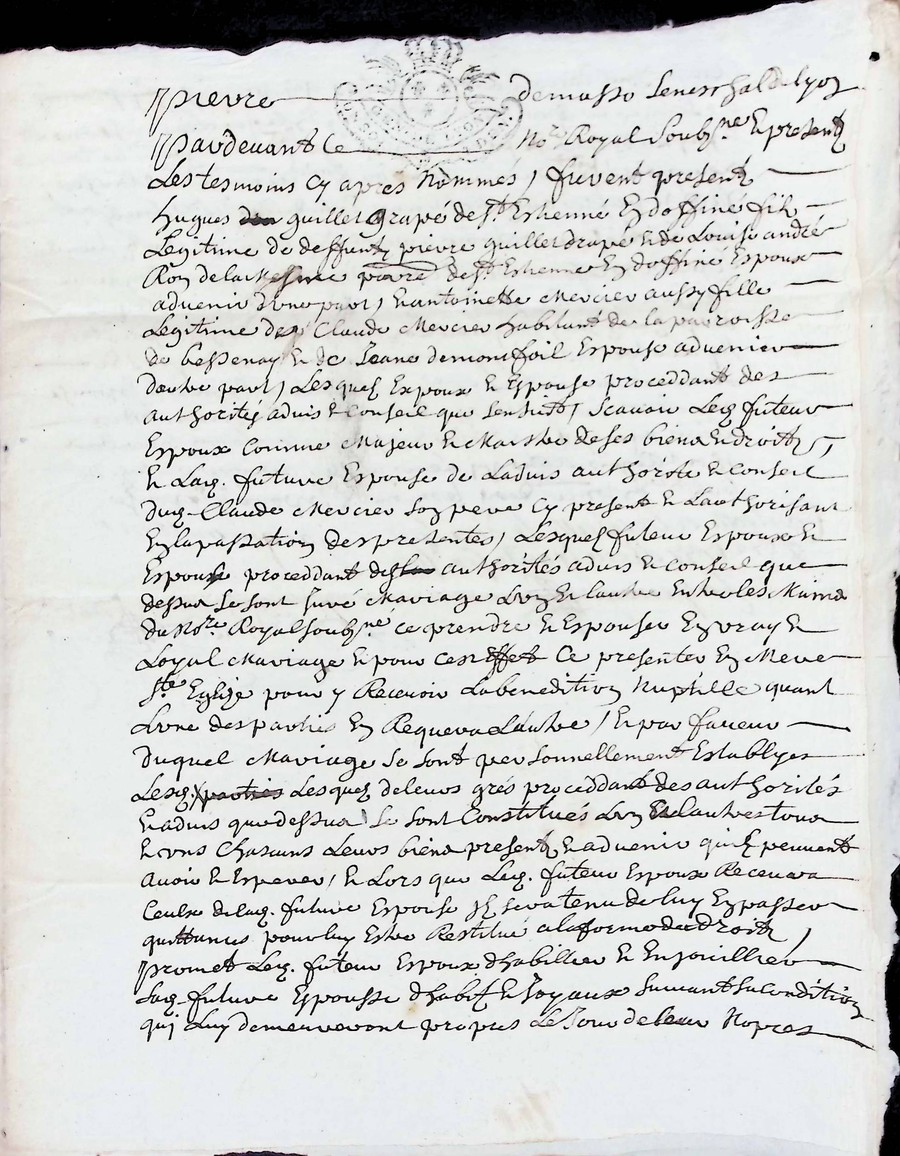 pierre demasso seneschal de lyon
pardevant le No.re Royal soub.ne Et presentz
Les tesmoins Cy apres Nommés / furent presentz
hugues guillet drapé de S.t Estienne En doffine filz
Legitime de deffuntz pierre guillet drapé Et de Louise andré
de S.t Estienne En doffine Espoux
advenir d'une part / Et antoinette Mercier aussy fille
Legitime de Claude Mercier habitant de la parroisse
de bessenay Et de Jeane demontfoil Espouse advenier
dautre part / Lesquelz Expoux Et Espouse proceddant des
authorités advis Et Conseil que sensuit / scavoir Led. futeur
Espoux Comme Majeur Et Maistre de ses biens Et droitz
Et Lad. future Espouse de Ladvis authorité Et Conseil
dud. Claude Mercier son pere Cy present Et Lauthorisant
En la passation des presentes / Lesquelz futeur Espoux Et
Espouse proceddant des authorités advis Et Conseil que
dessus se sont juré Mariage Lun Et Lautre Entre les Mains
du No.re Royal soub.ne ce prendre Et Espouser En vray Et
Loyal Mariage Et pour cest Effet Ce presenter En Mere
S.te Eglize pour y Recevoir La benedition Nuptille quant
Lune des parties En Requera Lautre / Et par faveur
duquel Mariage se sont personnellement Establyes
Lesd. parties Lesquelz de leurs grés proceddant des authorités
Et advis que dessus se sont Constitués Lun Et Lautre tous
Et uns Chascuns Leurs biens presentz Et advenir quilz peuvent
avoir Et Esperer / Et Lors que Led. futeur Espoux Recevra
Ceulx de lad. future Espouse Il sera tenu de luy En passer
quittances pour luy Estre Restitué a la forme du droitz /
promet Led. futeur Espoux dhabillier Et Enjoillier
Lad. future Espousse dhabitz Et Joyaux suivant sa Condition
qui Luy demeureront propres Le Jour de leur Nopces